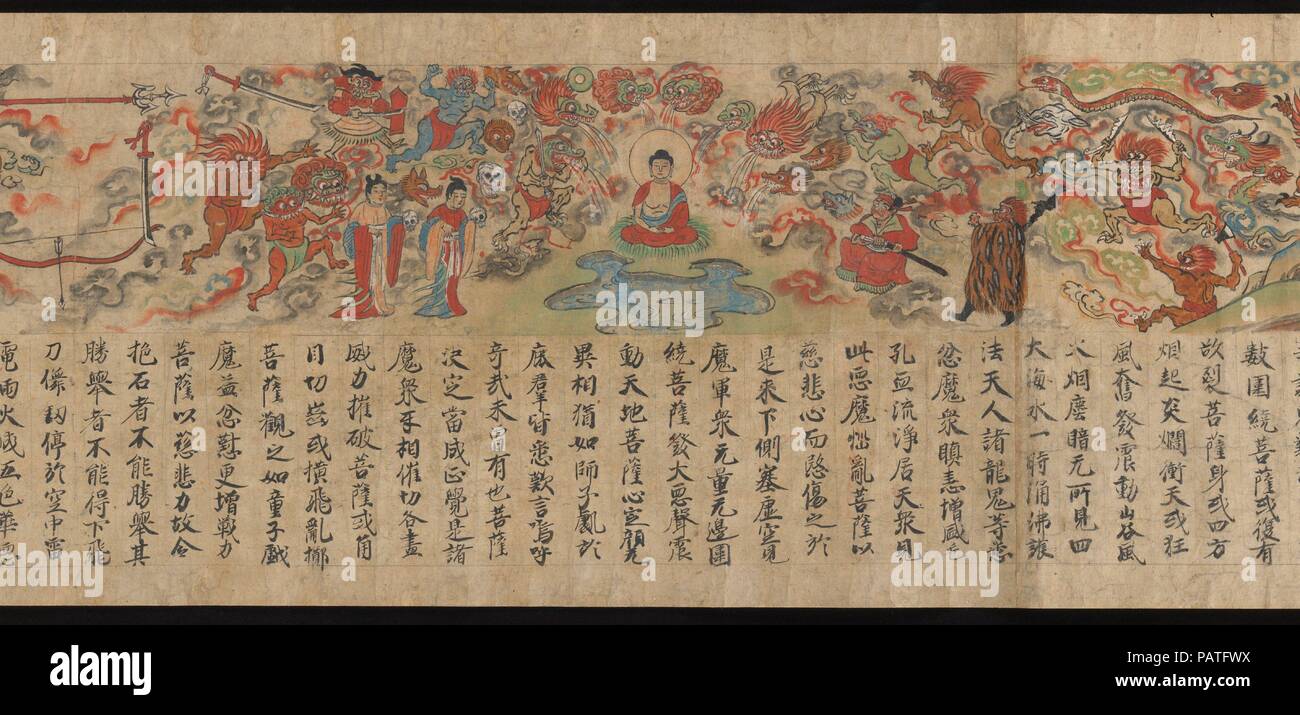 數圍繞菩薩或復有
故裂菩薩身或四方
烟起炎爛衝天或狂
風奮發震動山谷風
火烟塵暗无所見四
大海水一時涌沸護
法天人諸龍鬼等悉
忿魔衆瞋恚增盛毛
孔血流淨居天衆見
此惡魔惱亂菩薩以
慈悲心而愍傷之於
是來下側塞虛空見
魔軍衆无量无邊圍
繞菩薩發大惡聲震
動天地菩薩心定顏
異相猶如師子處於
鹿群皆悉歎言嗚呼
奇哉未曾有也菩薩
決定當成正覺是諸
魔衆互相催切各盡
威力摧破菩薩或角
目切齒或橫飛亂擲
菩薩觀之如童子戲
魔益忿懟更增戰力
菩薩以慈悲力故令
抱石者不能勝舉其
勝舉者不能得下飛
刀儛劔停於空中雷
電雨火成五色華
alamy
Image ID: PATFWX
www.alamy.com